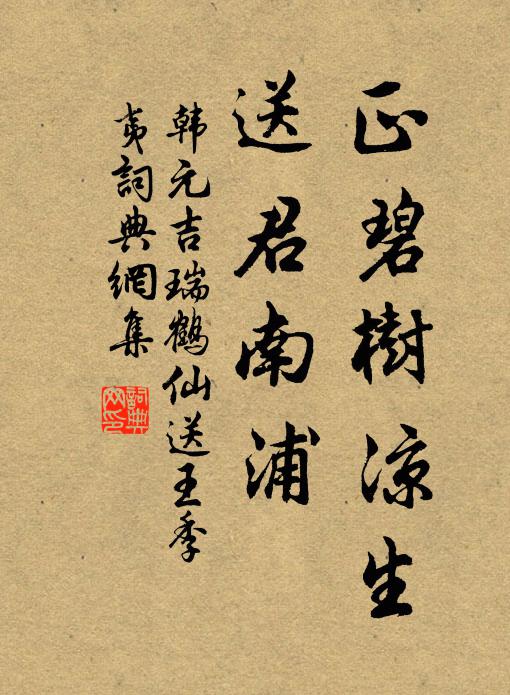 正碧樹涼生
送君南浦
韩元吉瑞鶴仙送王季
夷詞典網集
詞典